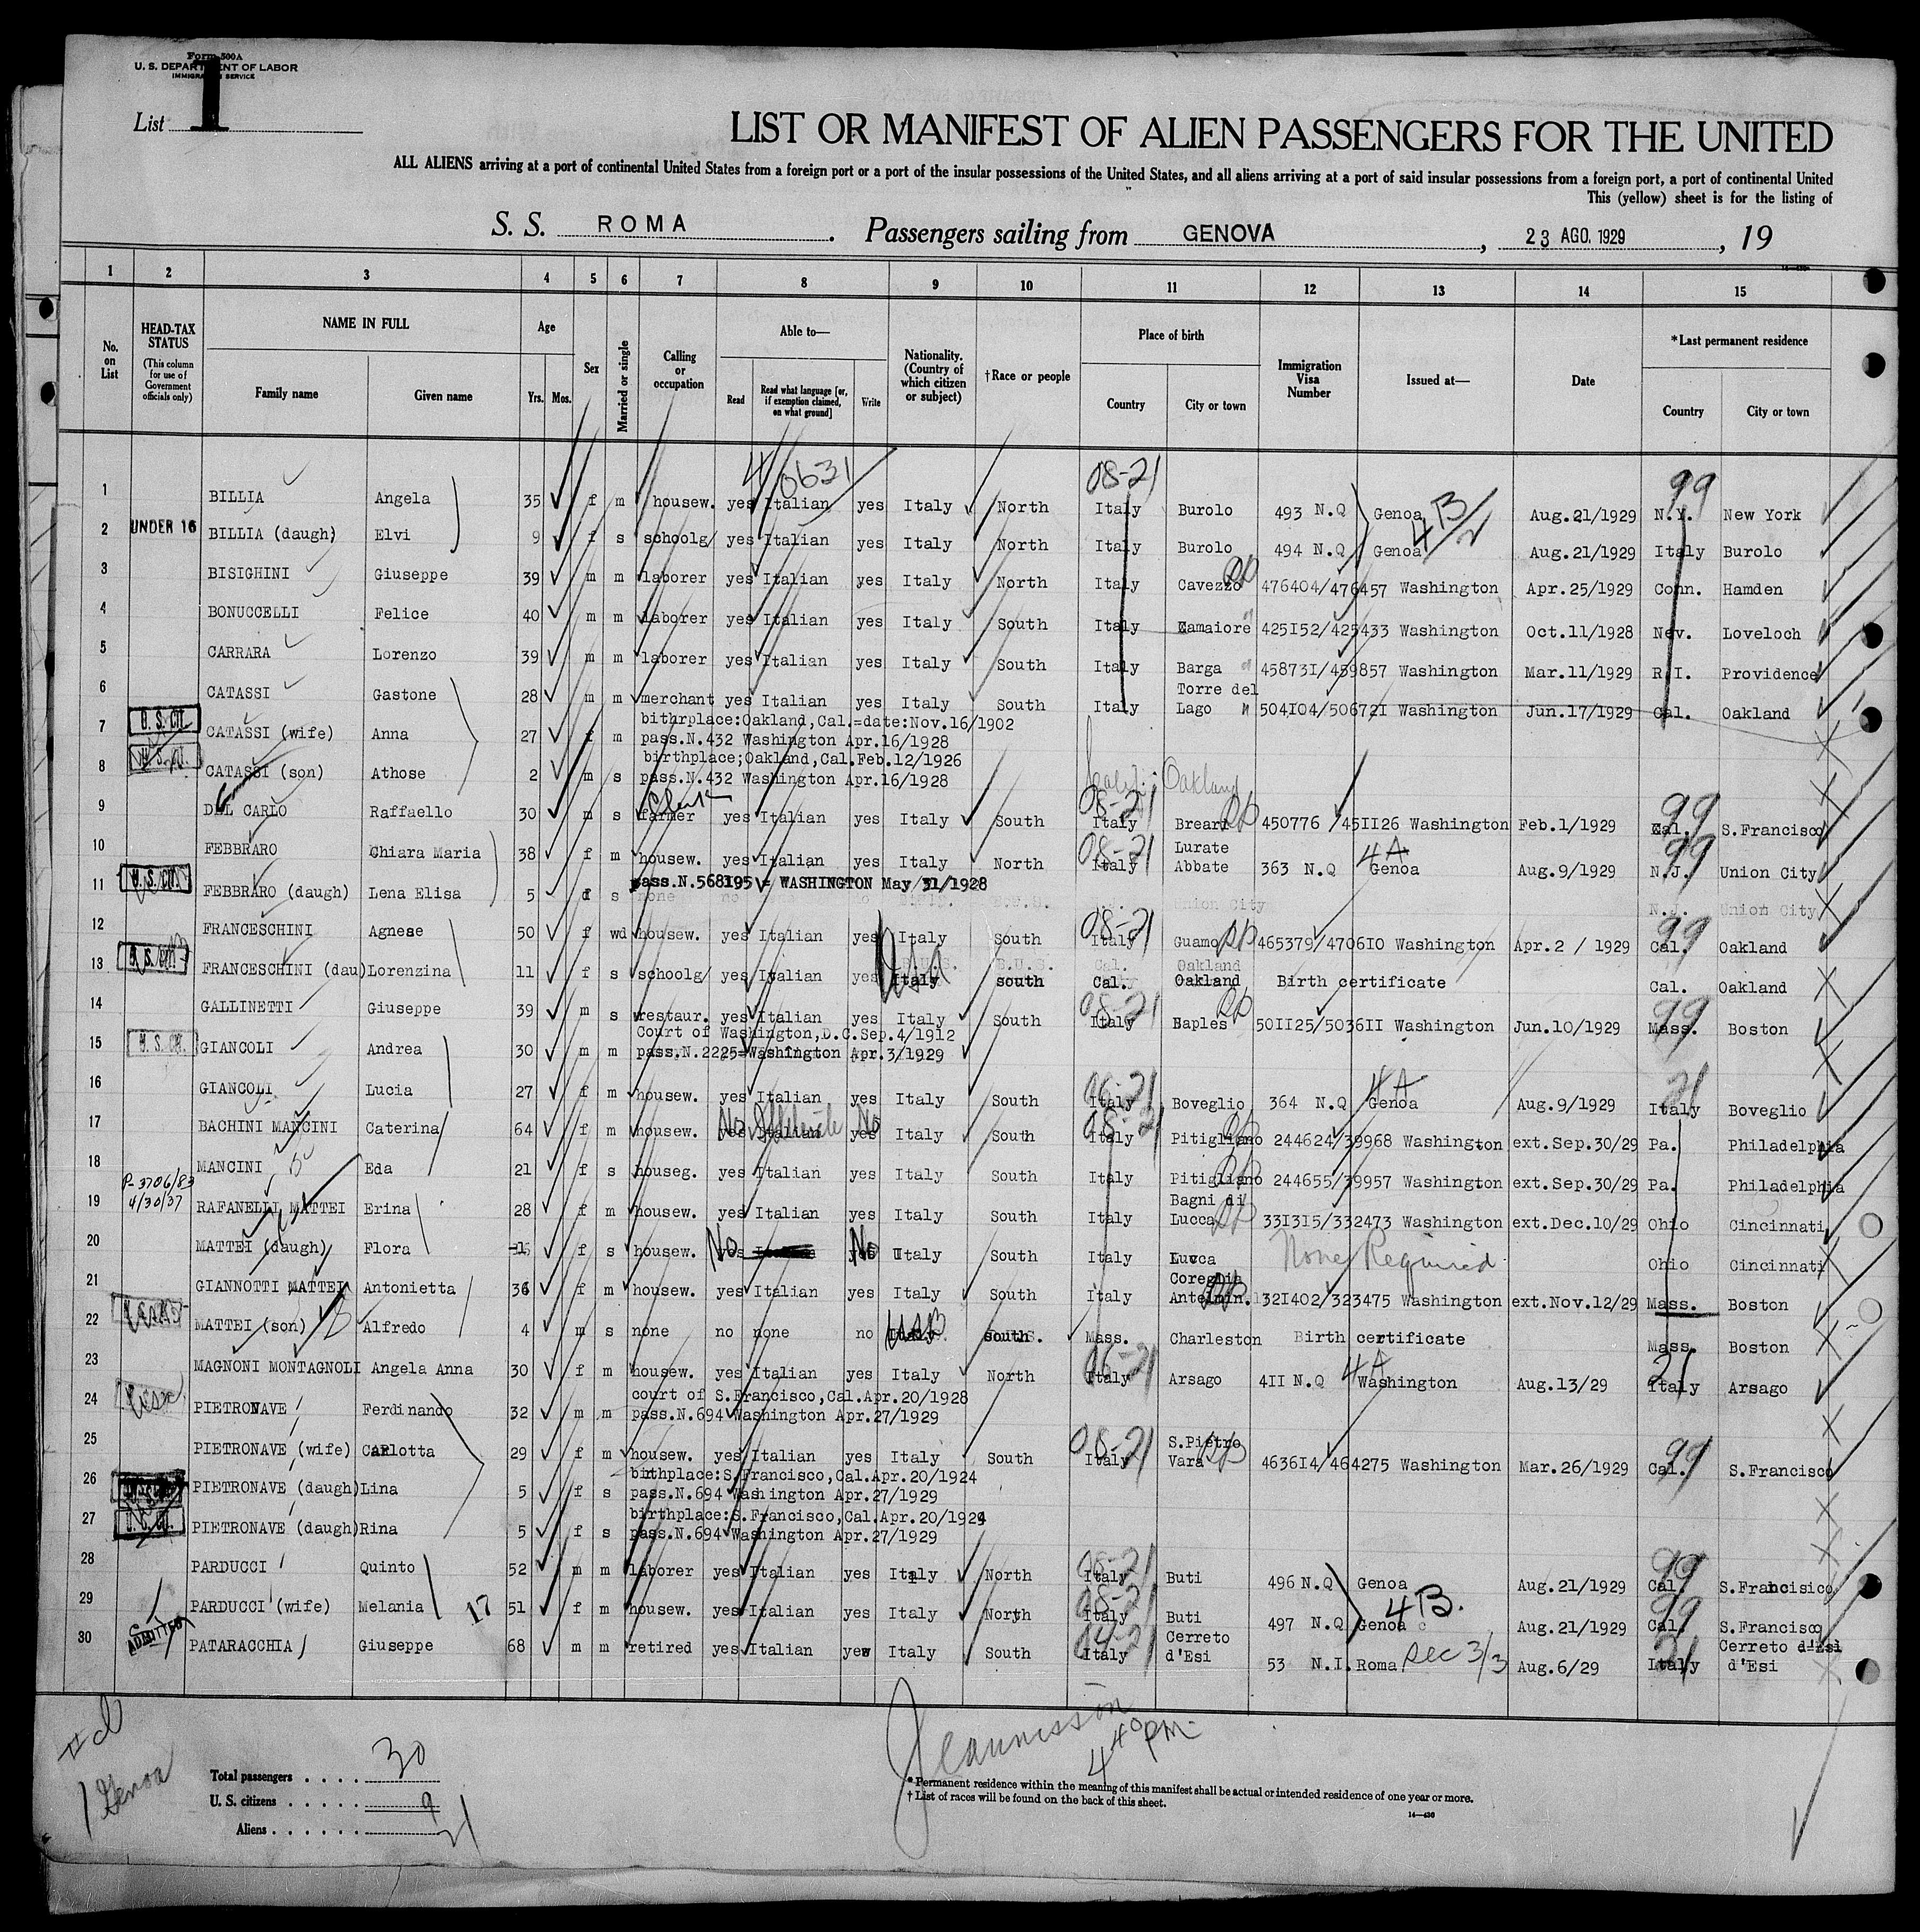 Form 500A
U. S. DEPARTMENT OF LABOR
IMMIGRATION SERVICE
List 1
LIST OR MANIFEST OF ALIEN PASSENGERS FOR THE UNITED
ALL ALIENS arriving at a port of continental United States from a foreign port or a port of the insular possessions of the United States, and all aliens arriving at a port of said insular possessions from a foreign port, a port of continental United
This (yellow) sheet is for the listing of
S. S. ROMA . Passengers sailing from GENOVA , 23 AGO. 1929 , 19
1 2 3 4 5 6 7 8 9 10 11 12 13 14 15
No. on List HEAD-TAX STATUS (This column for use of Government officials only) NAME IN FULL Family name Given name Age Yrs. Mos. Sex Married or single Calling or occupation Able to— Read Read what language [or, if exemption claimed, on what ground] Write Nationality. (Country of which citizen or subject) †Race or people Place of birth Country City or town Immigration Visa Number Issued at— Date *Last permanent residence Country City or town
4 0631 08-21 99
1 BILLIA Angela 35 f m housew. yes Italian yes Italy North Italy Burolo 493 N.Q Genoa Aug.21/1929 N.Y. New York
4B/2
2 UNDER 16 BILLIA (daugh) Elvi 9 f s schoolg/ yes Italian yes Italy North Italy Burolo 494 N.Q Genoa Aug.21/1929 Italy Burolo
3 BISIGHINI Giuseppe 39 m m laborer yes Italian yes Italy North Italy Cavezzo 476404/476457 Washington Apr.25/1929 Conn. Hamden
4 BONUCCELLI Felice 40 m m laborer yes Italian yes Italy South Italy Camaiore 425152/425433 Washington Oct.11/1928 Nev. Loveloch
5 CARRARA Lorenzo 39 m m laborer yes Italian yes Italy South Italy Barga 458731/459857 Washington Mar.11/1929 R.I. Providence
6 CATASSI Gastone 28 m m merchant yes Italian yes Italy South Italy Torre del Lago 504104/506721 Washington Jun.17/1929 Cal. Oakland
birthplace:Oakland,Cal.=date:Nov.16/1902
7 U. S. Cit. CATASSI (wife) Anna 27 f m pass.N.432 Washington Apr.16/1928
birthplace;Oakland,Cal.Feb.12/1926
8 U. S. Cit. CATASSI (son) Athose 2 m s pass.N.432 Washington Apr.16/1928
Oakland
Clerk 08-21 99
9 DEL CARLO Raffaello 30 m s farmer yes Italian yes Italy South Italy 450776 /451126 Washington Feb.1/1929 Cal. S.Francisco
10 FEBBRARO Chiara Maria 38 f m housew. yes Italian yes Italy North 08-21 Italy Lurate Abbate 363 N.Q 4A Genoa Aug.9/1929 99 N.J. Union City
pass.N.568195 = WASHINGTON May 31/1928
11 U. S. Cit. FEBBRARO (daugh) Lena Elisa 5 s none no no Union City N.J. Union City
12 FRANCESCHINI Agnese 50 f wd housew. yes Italian yes Italy South 08-21 Italy Guamo 465379/470610 Washington Apr.2 / 1929 99 Cal. Oakland
13 U. S. Cit. FRANCESCHINI (dau) Lorenzina 11 f s schoolg/ yes Italian yes USA Italy south Cal. Oakland Birth certificate Cal. Oakland
14 GALLINETTI Giuseppe 39 m s restaur. yes Italian yes Italy South 08-21 Italy Naples 501125/503611 Washington Jun.10/1929 99 Mass. Boston
Court of Washington,D.C.Sep.4/1912
15 U. S. Cit. GIANCOLI Andrea 30 m m pass.N.2225=Washington Apr.3/1929
16 GIANCOLI Lucia 27 f m housew. yes Italian yes Italy South 06-21 Italy Boveglio 364 N.Q 4A Genoa Aug.9/1929 21 Italy Boveglio
No Illiterate No 08-21
17 BACHINI MANCINI Caterina 64 f m housew. yes Italian yes Italy South Italy Pitigliano 244624/39968 Washington ext.Sep.30/29 Pa. Philadelphia
18 MANCINI Eda 21 f s houseg. yes Italian yes Italy South Italy Pitigliano 244655/39957 Washington ext.Sep.30/29 Pa. Philadelphia
P-3706/83
4/30/37
19 RAFANELLI MATTEI Erina 28 f m housew. yes Italian yes Italy South Italy Bagni di Lucca 331315/332473 Washington ext.Dec.10/29 Ohio Cincinnati
20 MATTEI (daugh) Flora f s housew. No No Italy South Italy Lucca None Required Ohio Cincinnati
21 GIANNOTTI MATTEI Antonietta 36 f m housew. yes Italian yes Italy South Italy Coreglia Antelmin. 321402/323475 Washington ext.Nov.12/29 Mass. Boston
22 MATTEI (son) Alfredo 4 m s none no none no Italy south Mass. Charleston Birth certificate Mass. Boston
23 MAGNONI MONTAGNOLI Angela Anna 30 f m housew. yes Italian yes Italy North 06-21 Italy Arsago 411 N.Q 4A Washington Aug.13/29 21 Italy Arsago
court of S.Francisco,Cal.Apr.20/1928
24 PIETRONAVE Ferdinando 32 m m pass.N.694 Washington Apr.27/1929
25 PIETRONAVE (wife) Carlotta 29 f m housew. yes Italian yes Italy South 08-21 Italy S.Pietro Vara 463614/464275 Washington Mar.26/1929 99 Cal. S.Francisco
birthplace:S.Francisco,Cal.Apr.20/1924
26 PIETRONAVE (daugh) Lina 5 f s pass.N.694 Washington Apr.27/1929
birthplace:S.Francisco,Cal.Apr.20/1924
27 U. S. Cit. PIETRONAVE (daugh) Rina 5 f s pass.N.694 Washington Apr.27/1929
28 PARDUCCI Quinto 52 m m laborer yes Italian yes Italy North 08-21 Italy Buti 496 N.Q Genoa Aug.21/1929 99 Cal. S.Francisico
29 PARDUCCI (wife) Melania 17 51 f m housew. yes Italian yes Italy North 08-21 Italy Buti 497 N.Q Genoa 4B. Aug.21/1929 99 Cal. S.Francisco
30 ADMITTED PATARACCHIA Giuseppe 68 m m retired yes Italian yes Italy South 04-21 Italy Cerreto d'Esi 53 N.I. Roma Sec 3/3 Aug.6/29 21 Italy Cerreto d'Esi d'Esi
4 40 PM
1 Genoa
Total passengers . . . . 30
U. S. citizens . . . . . 9
Aliens . . . . . . 21
*Permanent residence within the meaning of this manifest shall be actual or intended residence of one year or more.
† List of races will be found on the back of this sheet.
14—436